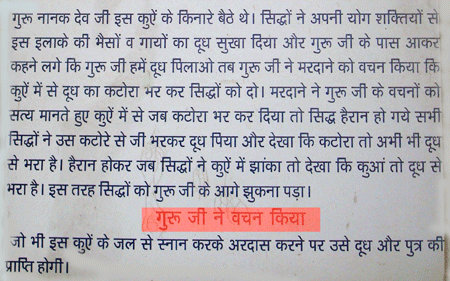 गुरू नानक देव जी इस कुऐं के किनारे बैठे थे। सिद्धों ने अपनी योग शक्तियों से
इस इलाके की भैसों व गायों का दूध सुखा दिया और गुरू जी के पास आकर
कहने लगे कि गुरू जी हमें दूध पिलाओ तब गुरू जी ने मरदाने को वचन किया कि
कुऐं में से दूध का कटोरा भर कर सिद्धों को दो। मरदाने ने गुरू जी के वचनों को
सत्य मानते हुए कुऐं में से जब कटोरा भर कर दिया तो सिद्ध हैरान हो गये सभी
सिद्धों ने उस कटोरे से जी भरकर दूध पिया और देखा कि कटोरा तो अभी भी दूध
से भरा है। हैरान होकर जब सिद्धों ने कुऐं में झांका तो देखा कि कुआं तो दूध से
भरा है। इस तरह सिद्धों को गुरू जी के आगे झुकना पड़ा।
गुरू जी ने वचन किया
जो भी इस कुऐं के जल से स्नान करके अरदास करने पर उसे दूध और पुत्र की
प्राप्ति होगी।